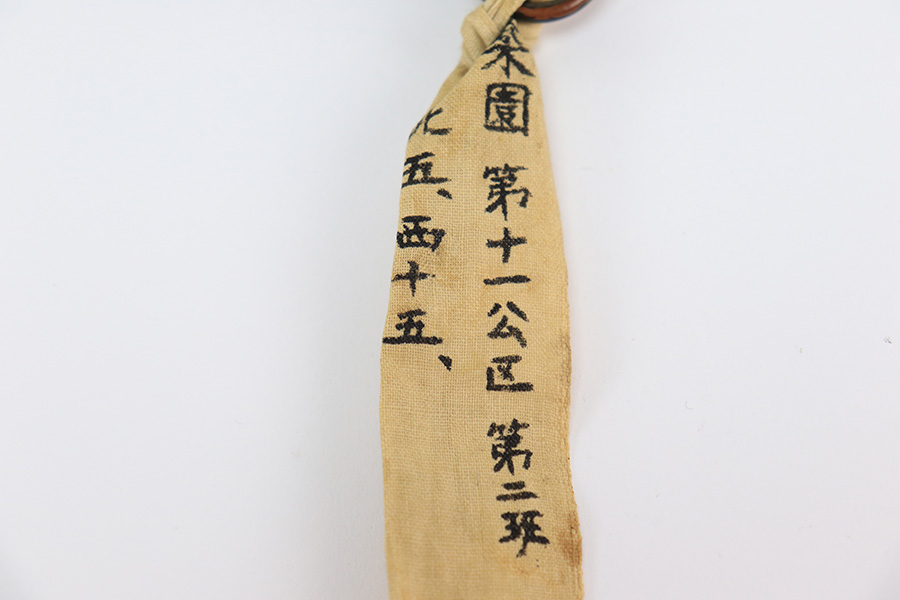 桑園 第十一公区 第二班
北五、西十五、